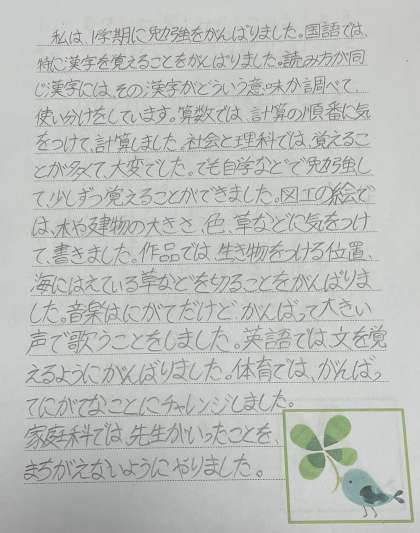 私は、1学期に勉強をがんばりました。国語では、
特に漢字を覚えることをがんばりました。読み方が同
じ漢字には、その漢字がどういう意味か調べて、
使い分けをしています。算数では、計算の順番に気
をつけて、計算しました。社会と理科では、覚えるこ
とが多くて、大変でした。でも自学などで勉強し
て、少しずつ覚えることができました。図工の絵で
は、水や建物の大きさ、色、草などに気をつけ
て、書きました。作品では、生き物をつける位置、
海にはえている草などを切ることをがんばりま
した。音楽はにがてだけど、がんばって大きい
声で歌うことをしました。英語では、文を覚
えるようにがんばりました。体育では、がんばっ
てにがてなことにチャレンジしました。
家庭科では、先生がいったことを、
まちがえないようにやりました。